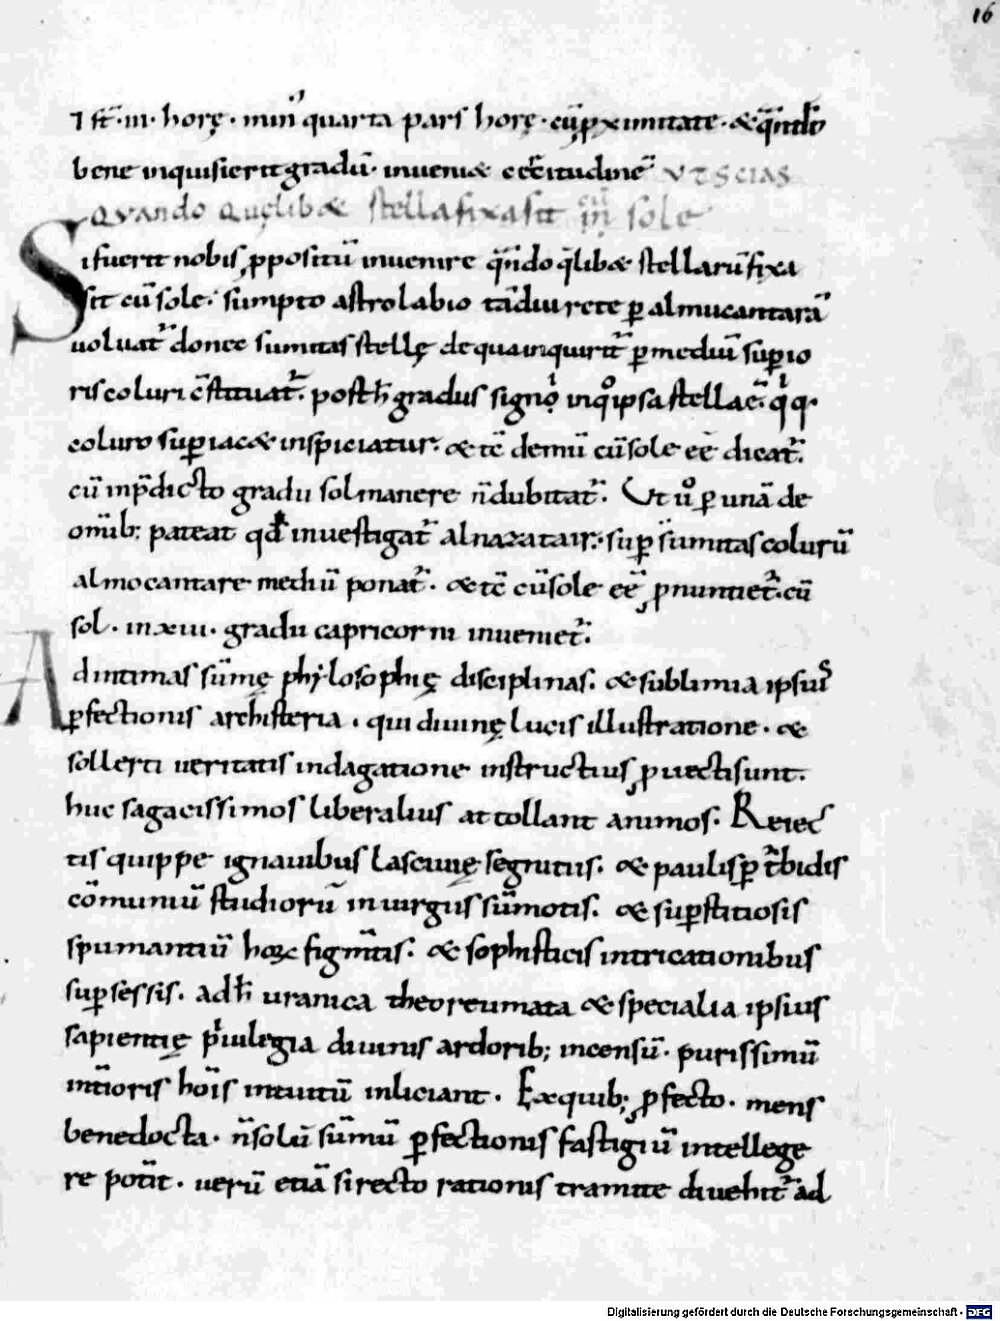 16
⁊ st̄·iii· horę· min̄ quarta pars horę· cū ꝓximitate· & q̄ndo
bene inquisierit gradū· inueni& c̄titudinē VT SCIAS
QVANDO Quęlib& stella fixa sit cū in sole
Si fuerit nobis ꝓpositū inuenire q̄ndo q̄lib& stellarū fixa
sit cū sole· sumpto astrolabio tādiu rete ꝑ almucantarā
uoluat̄ donec sumitas stellę de qua inquirit̄ ꝑ mediū suꝑio
ris coluri c̄stituat̄. post h̄ gradus signoꝝ in qͦ ipsa stella ē· q̄ q·
coluro suꝑiac& inspiciatur· & tc̄ demū cū sole eē dicat̄.
cū in p̄dicto gradu sol manere n̄ dubitat̄. Vt uͦ ꝑ unā de
omīb; pateat qđ inuestigat̄ alnazatair· suꝑ sumitas colurū
almocantare mediū ponat̄· & tc̄ cū sole eē ꝓnuntiet̄· cū
sol· in xiii· gradu capricorni inueniet̄.
Ad intimas sūmę phylosophię disciplinas· & sublimia ipsius
ꝑfectionis archisteria· qui diuinę lucis illustratione· &
sollerti ueritatis indagatione instructius ꝓuecti sunt.
huc sagacissimos liberalius attollant animos· Reiec
tis quippe ignauibus lasciuię segnitiis· & paulisꝑ t̄bidis
cōmuniū studiorū inuirgiis sūmotis. & suꝑstitiosis
spumantiū hoꝝ figm̄tis· & sophisticis intricationibus
suꝑsessis. ad h̄ uranica theoreumata & specialia ipsius
sapientię p̄uilegia diuinis ardorib; incensū· purissimū
int̄ioris hoīs intuitū inliciant· Ex quib; ꝓfecto· mens
bene docta· n̄ solū sūmū ꝑfectionis fastigiū intellege
re pot̄it· uerū etiā si recto rationis tramite diuehit̄ ad
Digitalisierung gefördert durch die Deutsche Forschungsgemeinschaft - DFG